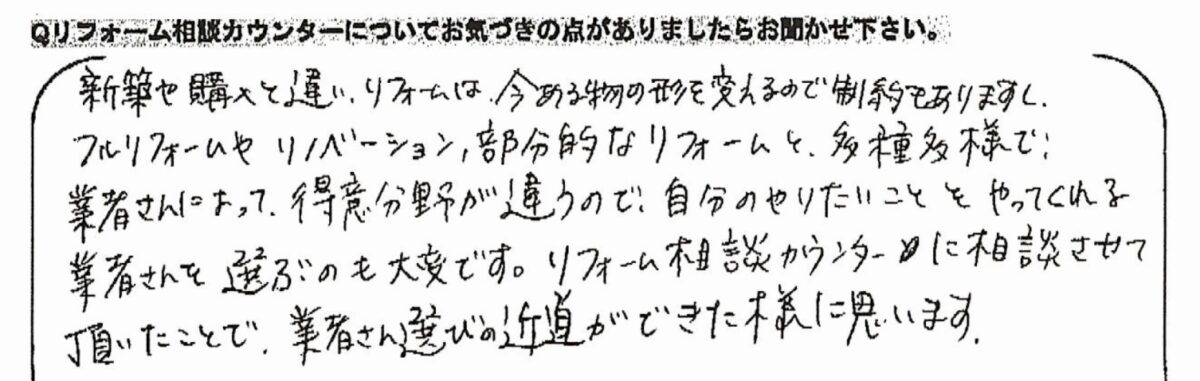 Qリフォーム相談カウンターについてお気づきの点がありましたらお聞かせ下さい。
新築や購入と違い、リフォームは、今ある物の形を変えるので制約もありますし、
フルリフォームや リノベーション,部分的なリフォームと、多種多様で、
業者さんによって、得意分野が違うので、自分のやりたいことを やってくれる
業者さんを 選ぶのも大変です。リフォーム相談カウンターに相談させて
頂いたことで、業者さん選びの近道ができた様に思います。